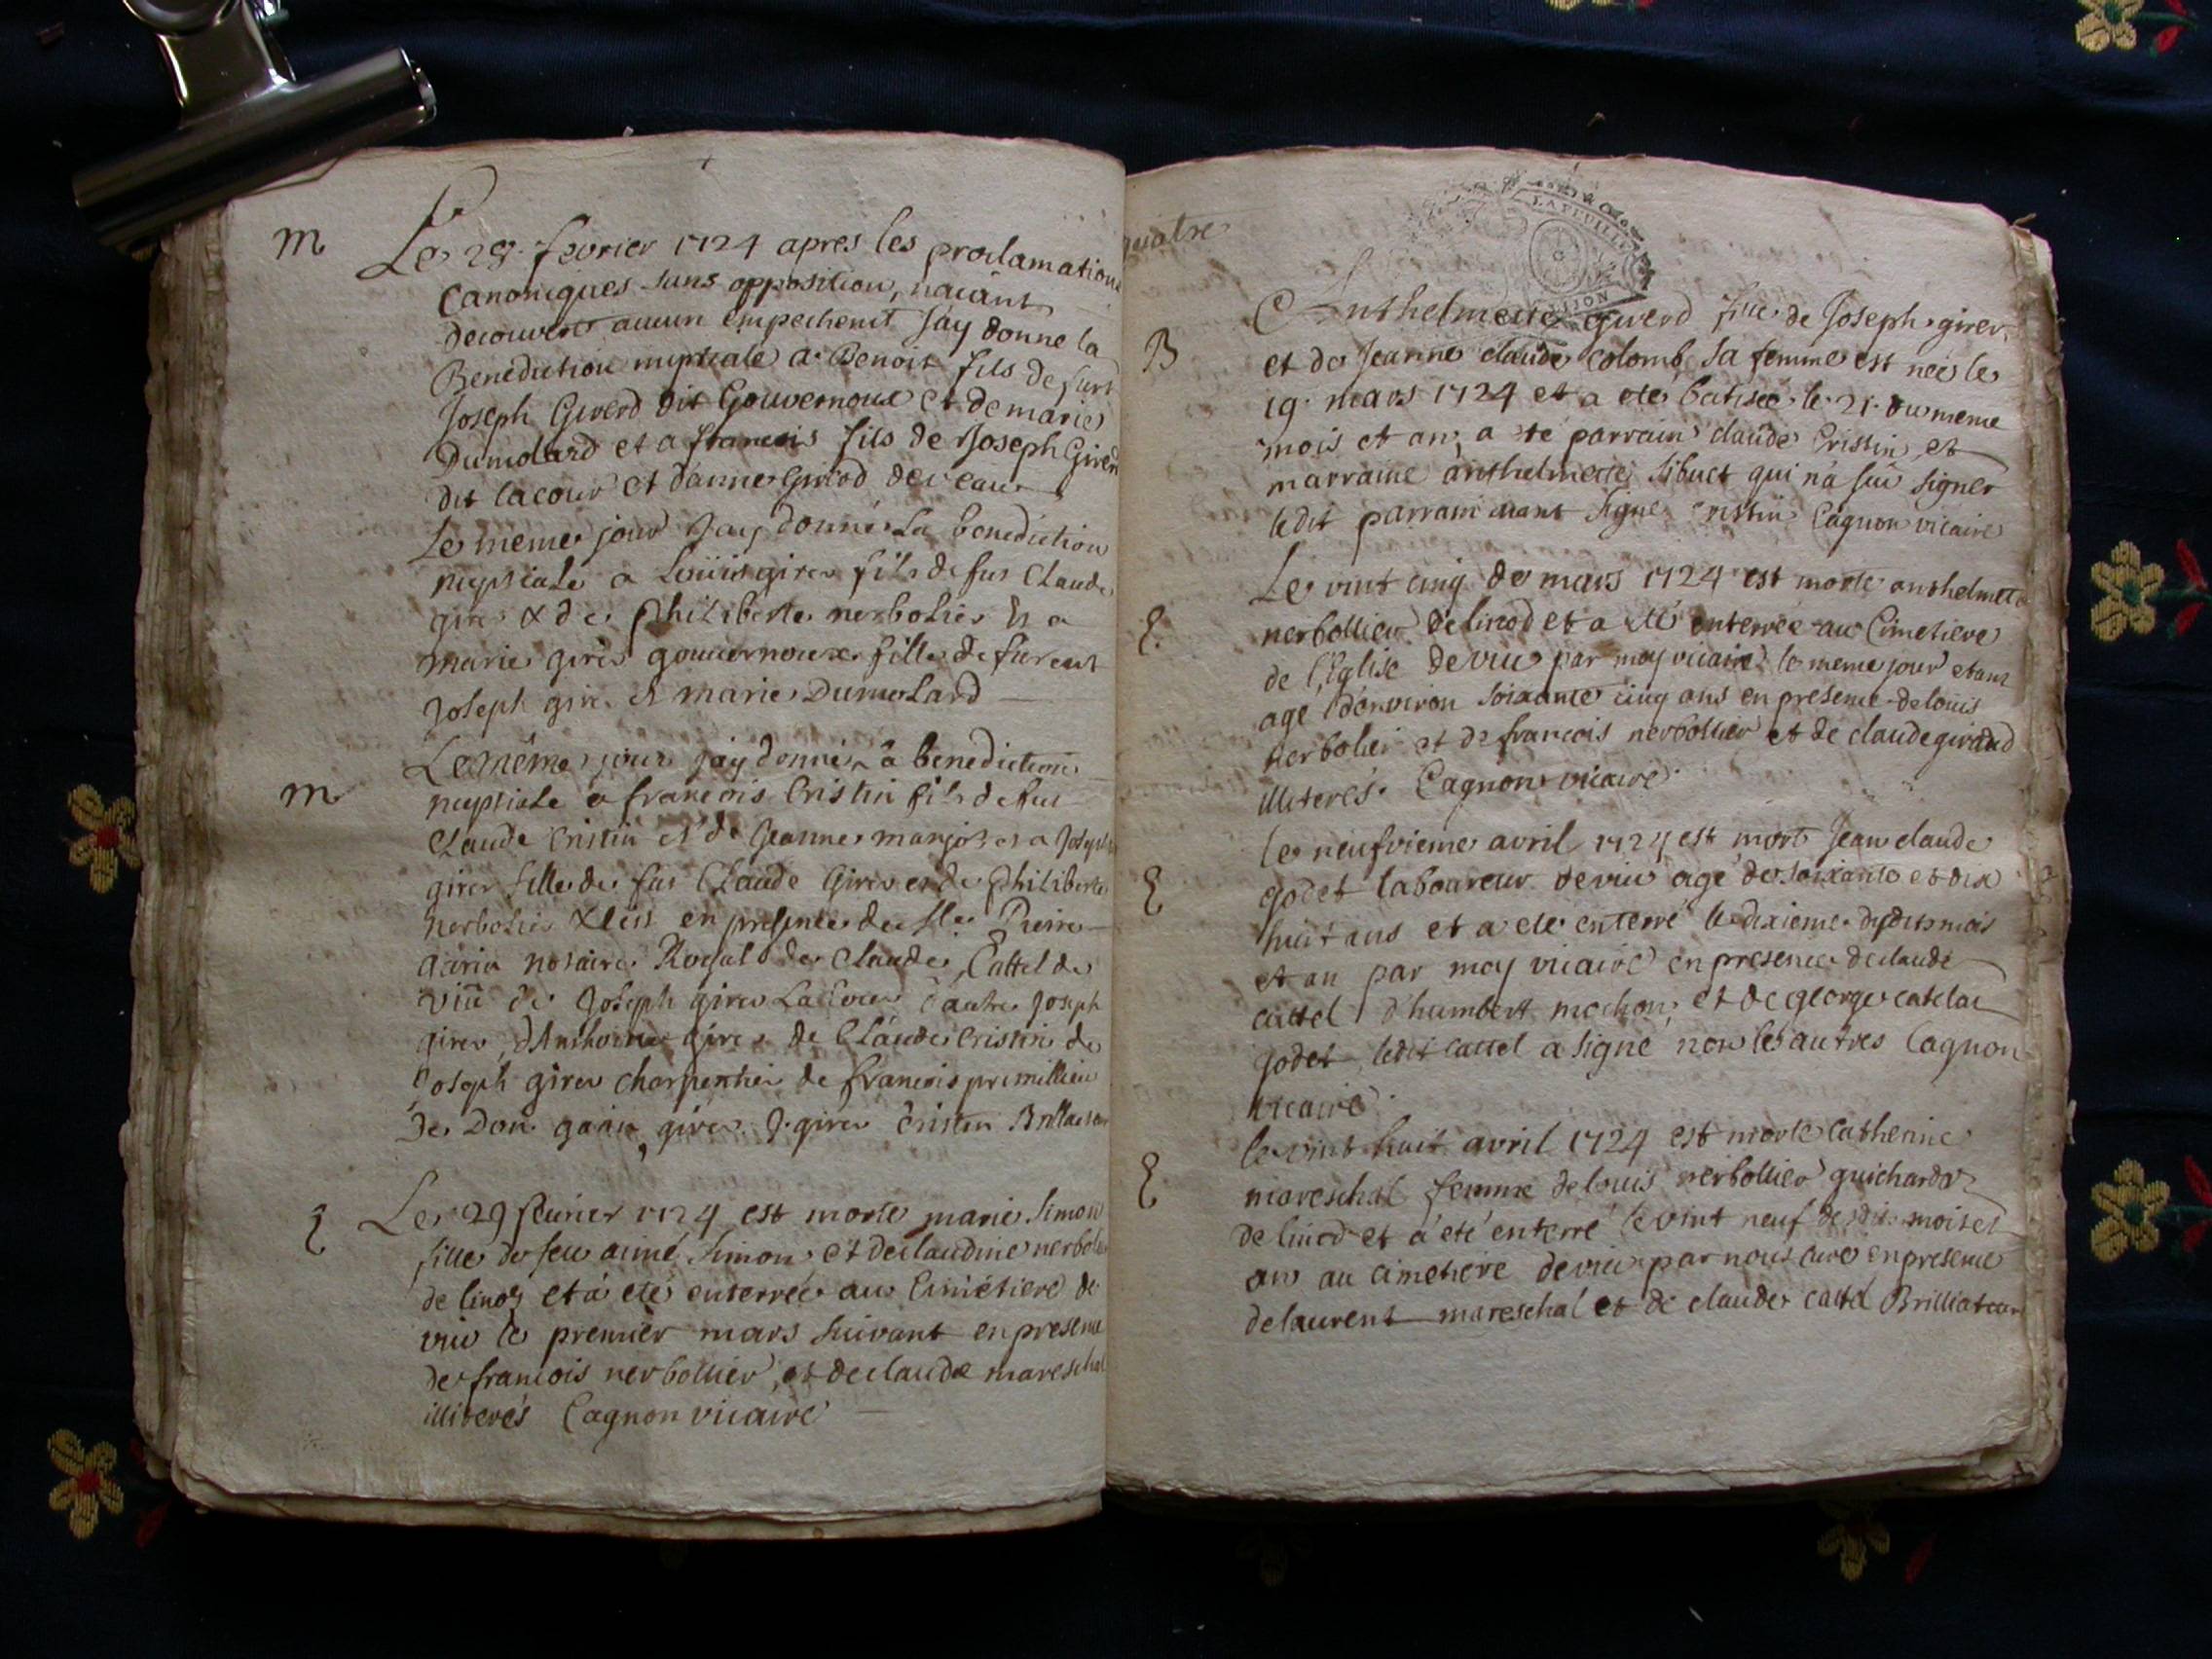 m
Le 28. fevrier 1724 apres les proclamations
Canoniques sans opposition, naiant
decouvert aucun empechemt Jay donne la
Benediction nuptiale a Benoit fils de
Joseph Girerd dit Gouvernoux et de marie
Dumolard et a francois fils de Joseph Girerd
dit lacour et danne Girerd
Le meme jour Jay donné La benediction
nuptiale a Louis girer fils de fut Claude
girer & de Philiberte nerbolier & a
marie girer gouvernoux fille de
Joseph girer & marie Dumolard
m
Le même jour jay donné la benediction
nuptiale a francois Cristin fils de fut
Claude Cristin et de Jeanne & a
girer fille de fut Claude Girer et de Philiberte
nerbolier en presence de Pierre
notaire Royal de Claude Cattel de
viu de Joseph girer Lacour dautre Joseph
girer, dAnthoine girer de Claude Cristin de
Joseph girer charpentier de francois primillieu
De Don girer J. girer Cristin
E
Le 29 fevrier 1724 est morte marie Simon
fille de feu aimé Simon et de claudine nerbolier
de linod et a eté enterrée au Cimétiere de
viu le premier mars suivant en presence
de francois nerbollier, et de claude mareschal
illiterés Cagnon vicaire
quatre
LA FEUILLE
B
Anthelmette girerd fille de Joseph girer
et de Jeanne claude Colomb sa femme est née le
19. mars 1724 et a eté batisée le 21. du meme
mois et an, a été parrain claude Cristin, et
marraine anthelmette Sibuet qui n'a sû signer
ledit parrain aiant signé Cristin Cagnon vicaire
E.
Le vint cinq de mars 1724 est morte anthelmette
nerbollier de linod et a été enterrée au Cimetiere
de l'Eglise de viu par moy vicaire le meme jour etant
agé d'environ soixante cinq ans en presence de louis
nerbolier et de francois nerbollier et de claude giraud
illiterés. Cagnon vicaire.
E
le neufvieme avril 1724 est mort Jean claude
godet laboureur de viu agé de soixante et dix
huit ans et a eté enterré le dixieme dudit mois
et an par moy vicaire en presence de claude
cattel d'humbert mochon, et de george
godet ledit cattel a signé non les autres Cagnon
vicaire.
E
le vint huit avril 1724 est morte Catherine
mareschal femme de louis nerbollier guichard
de linod et a eté enterré le vint neuf dudit mois et
an au cimetiere de viu par nous curé en presence
de laurent mareschal et de claude cattel Brilliateur